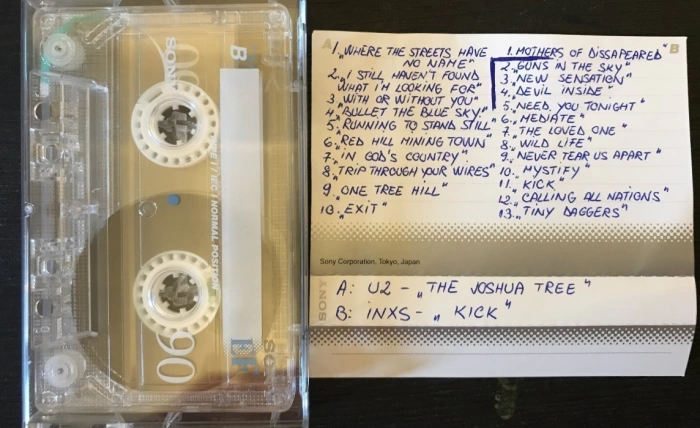 SONY
B
90
TYPE I / IEC I NORMAL POSITION
90
EF
SONY
A
1. „WHERE THE STREETS HAVE
NO NAME"
2. „I STILL HAVEN'T FOUND
WHAT I'M LOOKING FOR"
3. „WITH OR WITHOUT YOU"
4. „BULLET THE BLUE SKY"
5. „RUNNING TO STAND STILL"
6. „RED HILL MINING TOWN"
7. „IN GOD'S COUNTRY"
8. „TRIP THROUGH YOUR WIRES"
9. „ONE TREE HILL"
10. „EXIT"
B
1. „MOTHERS OF DISSAPEARED"
2. „GUNS IN THE SKY"
3. „NEW SENSATION"
4. „DEVIL INSIDE"
5. „NEED YOU TONIGHT"
6. „MEDIATE"
7. „THE LOVED ONE"
8. „WILD LIFE"
9. „NEVER TEAR US APART"
10. „MYSTIFY"
11. „KICK"
12. „CALLING ALL NATIONS"
13. „TINY DAGGERS"
Sony Corporation, Tokyo, Japan
SONY
A: U2 - „THE JOSHUA TREE"
B: INXS - „KICK"